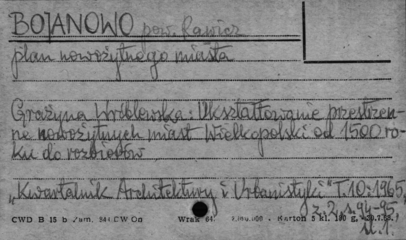 BOJANOWO pow. Rawicz
plan nowożytnego miasta
Grażyna Wróblewska: Ukształtowanie przestrzen-
ne nowożytnych miast Wielkopolski od 1500 ro-
ku do rozbiorów
"Kwartalnik Architektury i Urbanistyki" T.10:1965,
z. 2, s. 94-95
il. 1.
CWD B 15 b Zam. CWOn Wrak 64. Karton 5 kl.